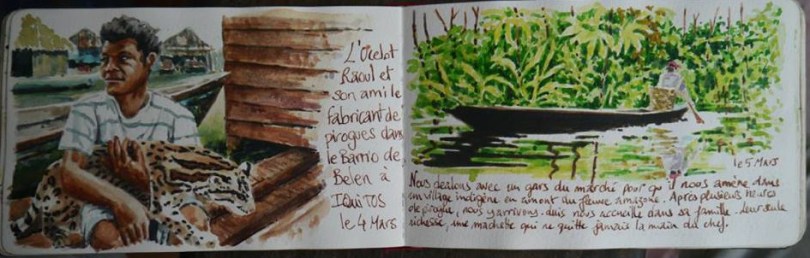 L'Ocelot
Raoul et
son ami le
fabricant de
pirogues dans
le Barrio de
Belen à
IQUITOS
le 4 Mars
le 5 Mars
Nous dealons avec un gars du marché pour qu'il nous amène dans
un village indigène en amont du fleuve amazone. Après plusieurs heures
de pirogue, nous y arrivons. nous accueille dans sa famille. leur seule
richesse, une machette qui ne quitte jamais la main du chef.